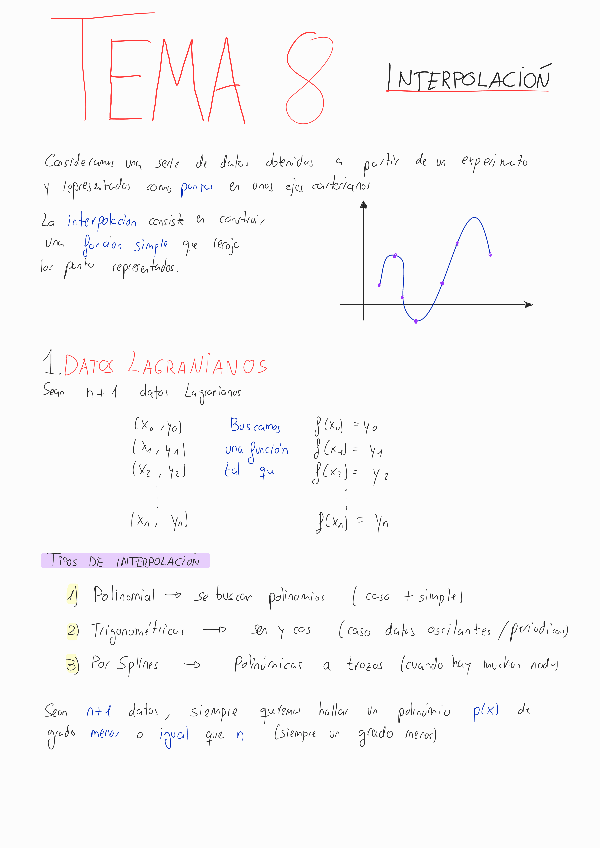 TEMA 8
INTERPOLACIÓN
Consideramos una serie de datos obtenidos a partir de un experimento
y representados como puntos en unos ejes cartesianos
La interpolación consiste en construir
una función simple que recoja
los puntos representados.
1. DATOS LAGRANIANOS
Sean n+1 datos Lagrarianos
(x₀, y₀) Buscamos f(x₀) = y₀
(x₁, y₁) una función f(x₁) = y₁
(x₂, y₂) tal que f(x₂) = y₂
(xₙ, yₙ) f(xₙ) = yₙ
TIPOS DE INTERPOLACIÓN
1) Polinomial → se buscan polinomios (caso + simple)
2) Trigonométricas → sen y cos (caso datos oscilantes / periodicos)
3) Por Splines → Polinómicas a trozos (cuando hay muchos nodos)
Sean n+1 datos, siempre queremos hallar un polinomio p(x) de
grado menor o igual que n (siempre un grado menos)